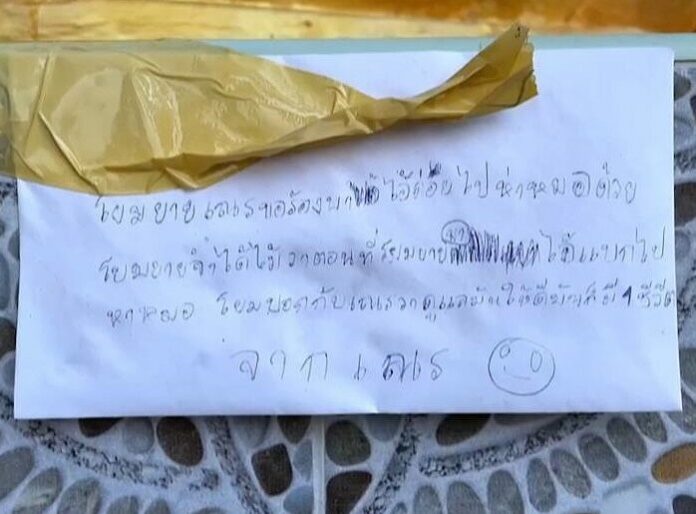 โยมยายเณรขอร้องพาไอ้ช่อยไปหาหมอด้วย
โยมยายจำได้ไหมว่าตอนที่โยมยาย ได้แบกไป
หาหมอ โยมบอกกับเณรว่าดูแลมันให้ดีมันก็มี 1 ชีวิต
จากเณร